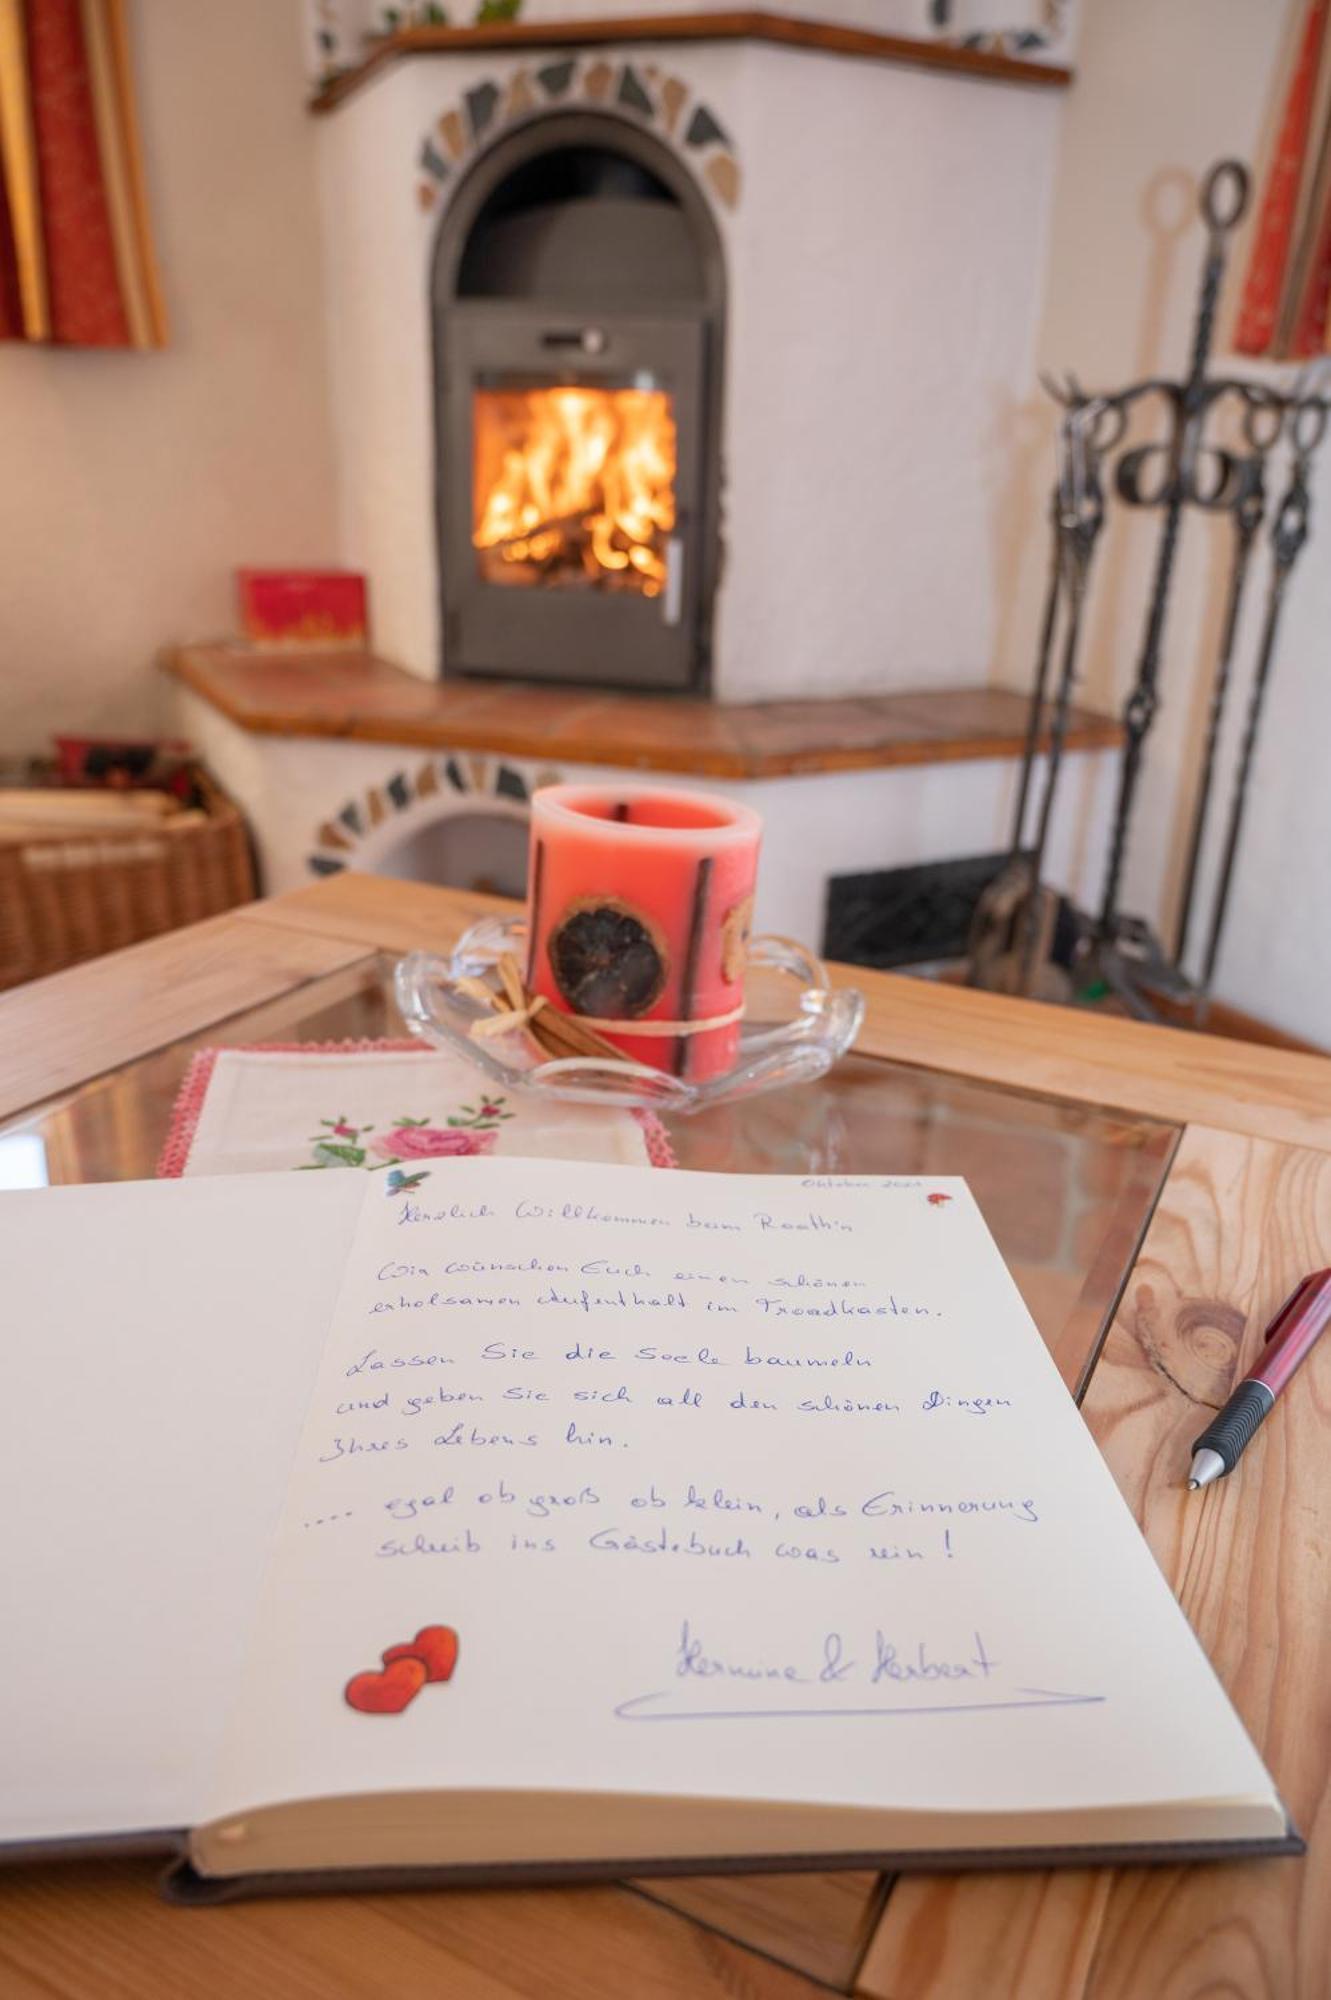 Oktober 2021
Herzlich Willkommen beim Roathin
Wir wünschen Euch einen schönen
erholsamen Aufenthalt im Troadkasten.
Lassen Sie die Seele baumeln
und geben Sie sich all den schönen Dingen
Ihres Lebens hin.
.... egal ob groß ob klein, als Erinnerung
schreib ins Gästebuch was rein!
Hermine & Herbert